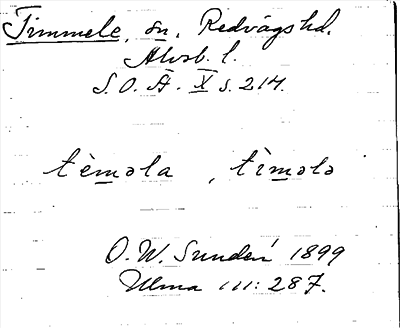 Timmele, sn, Redvägs hd.
Älvsb. l.
S. O. Ä. X s. 214.
tèməla, tìmələ
O. W. Sundén 1899
Ulma 111: 287.